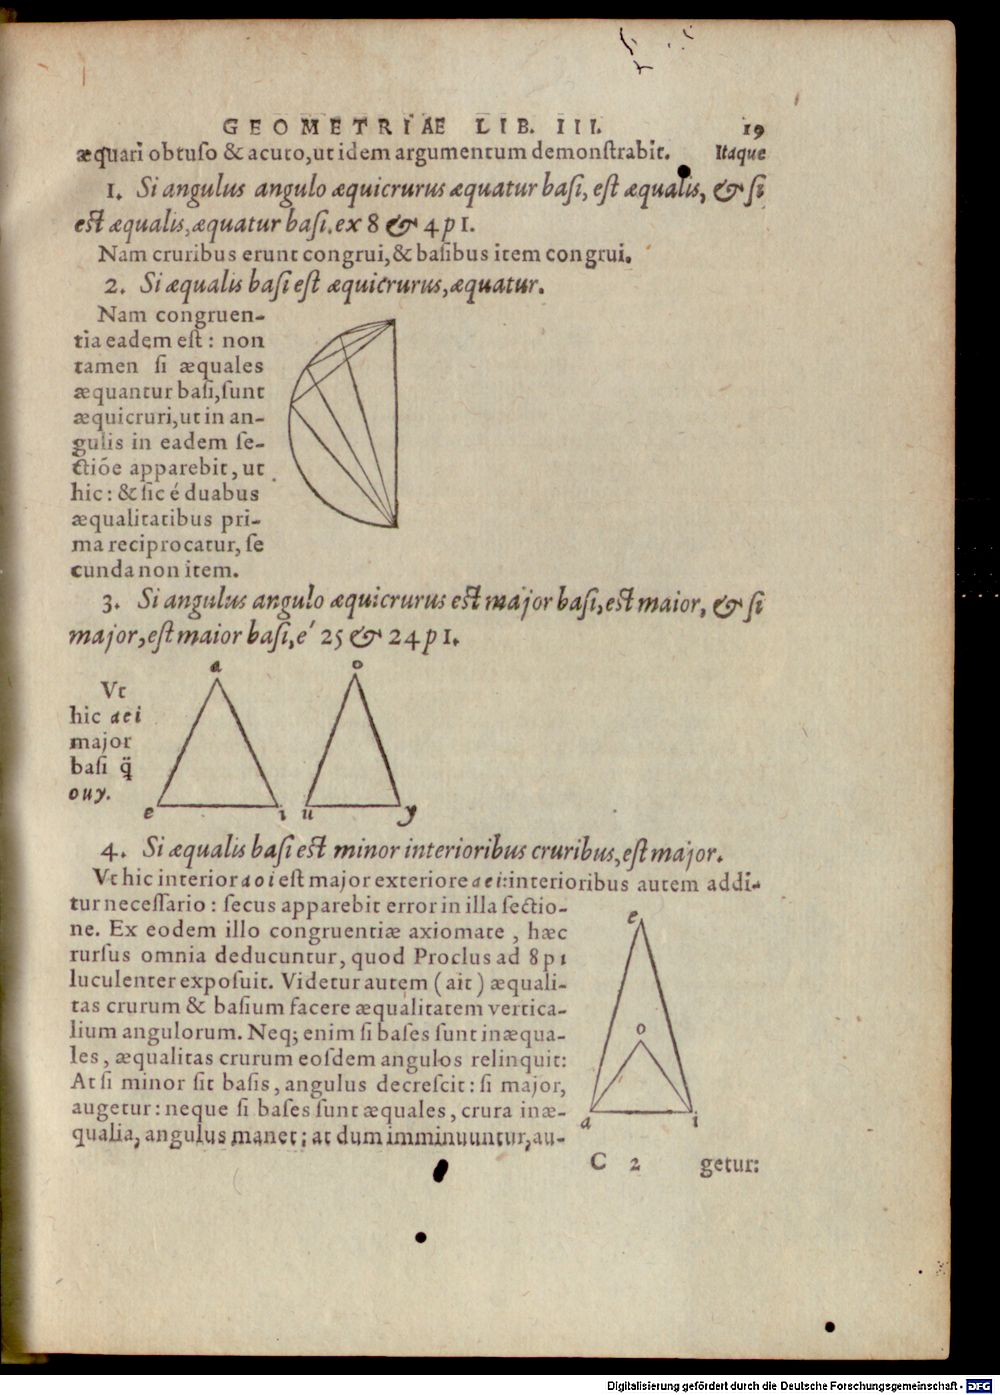 GEOMETRIÆ LIB. III. 19
æquari obtuso & acuto, ut idem argumentum demonstrabit. Itaque
1. Si angulus angulo æquicrurus æquatur basi, est æqualis, & si
est æqualis, æquatur basi. ex 8 & 4 p 1.
Nam cruribus erunt congrui, & basibus item congrui.
2. Si æqualis basi est æquicrurus, æquatur.
Nam congruen-
tia eadem est: non
tamen si æquales
æquantur basi, sunt
æquicruri, ut in an-
gulis in eadem se-
ctiõe apparebit, ut
hic: & sic é duabus
æqualitatibus pri-
ma reciprocatur, se
cunda non item.
3. Si angulus angulo æquicrurus est major basi, est maior, & si
major, est maior basi, é 25 & 24 p 1.
Vt
hic aei
major
basi q̃
ouy.
a
e
i
o
u
y
4. Si æqualis basi est minor interioribus cruribus, est major.
Vt hic interior aoi est major exteriore aei: interioribus autem addi-
tur necessario: secus apparebit error in illa sectio-
ne. Ex eodem illo congruentiæ axiomate, hæc
rursus omnia deducuntur, quod Proclus ad 8 p 1
luculenter exposuit. Videtur autem (ait) æquali-
tas crurum & basium facere æqualitatem vertica-
lium angulorum. Neq; enim si bases sunt inæqua-
les, æqualitas crurum eosdem angulos relinquit:
At si minor sit basis, angulus decrescit: si major,
augetur: neque si bases sunt æquales, crura inæ-
qualia, angulus manet; at dum imminuuntur, au-
e
o
a
i
C 2 getur:
Digitalisierung gefördert durch die Deutsche Forschungsgemeinschaft - DFG